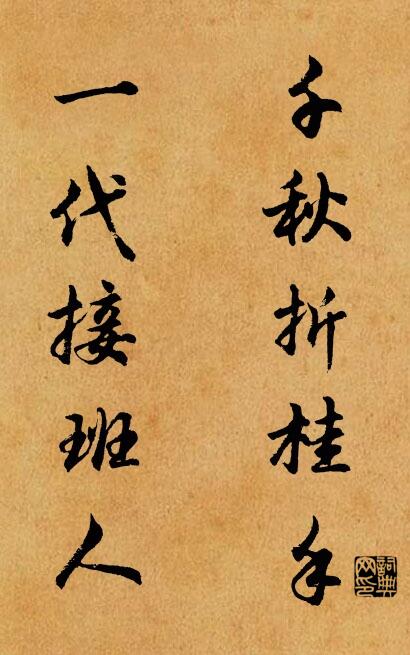 千秋折桂手
一代接班人
詞典网印